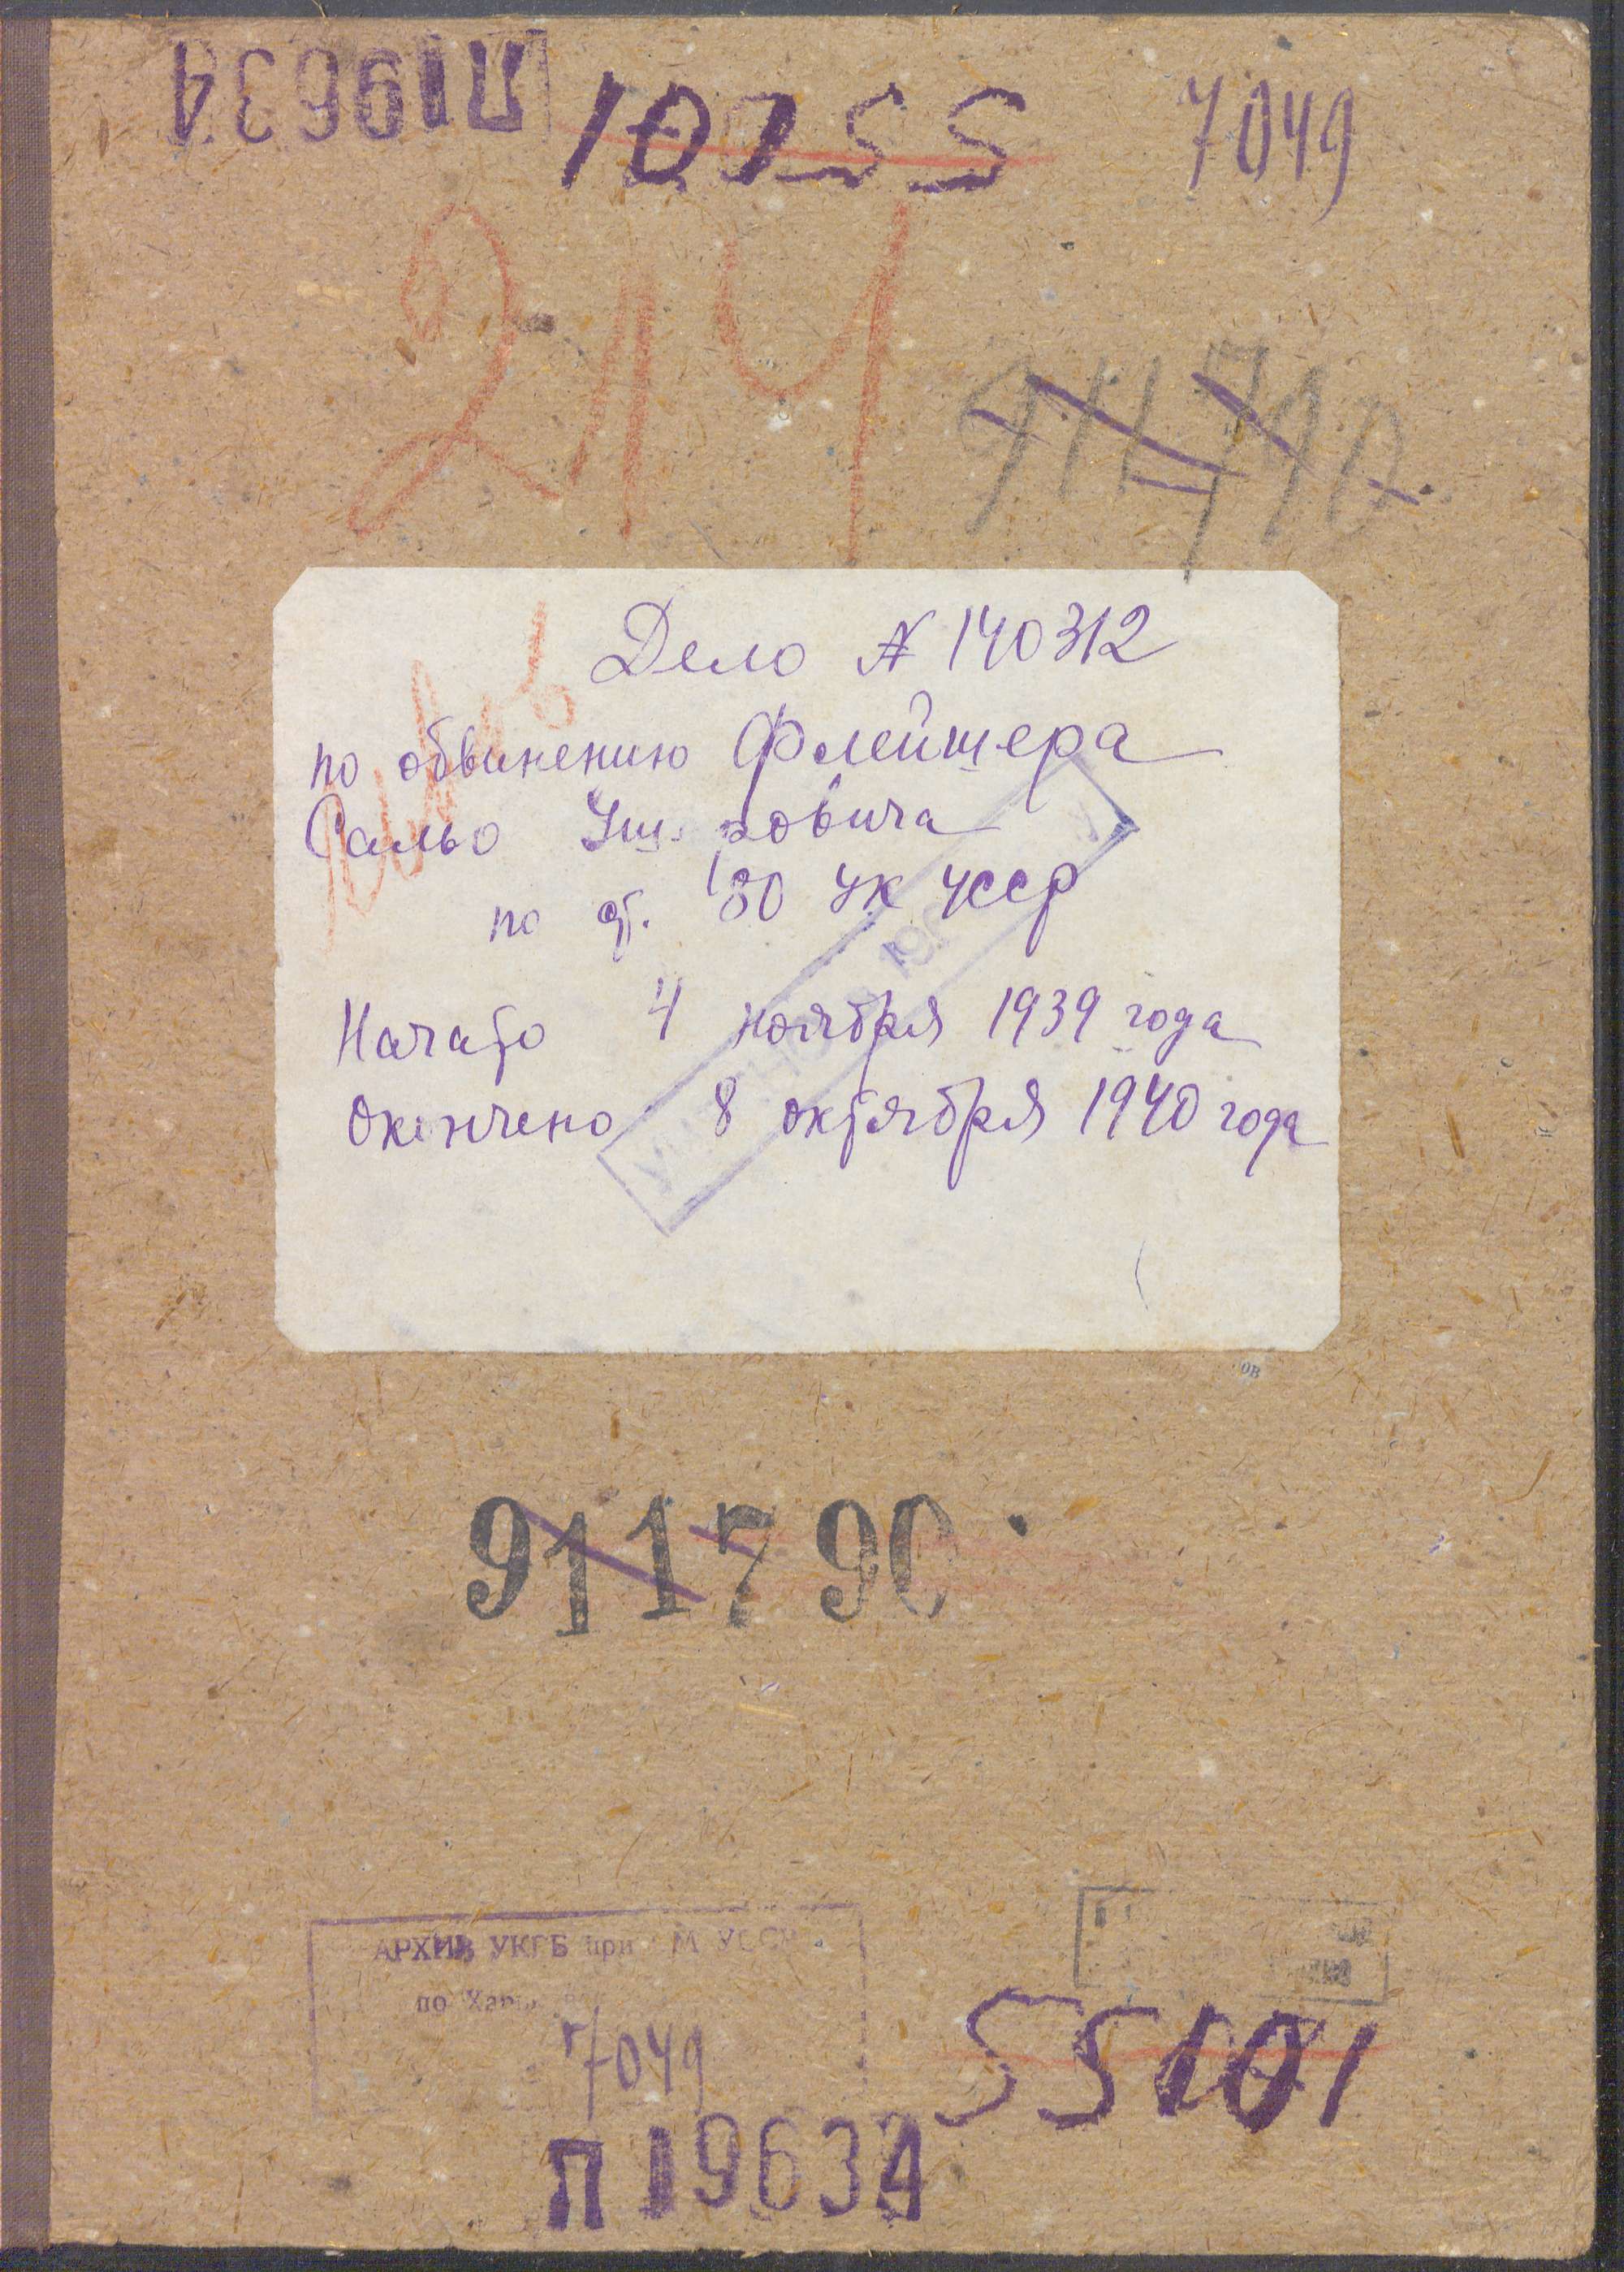 П19634
55101
7049
214
911790
Дело № 140312
по обвинению Флейшера
Сальо
по ст. 80 УК УССР
Начато 4 ноября 1939 года
Окончено 8 октября 1940 года
911790
АРХИВ УКГБ при УССР
по
7049
55101
П19634